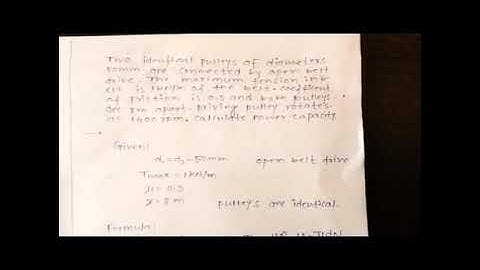 Two identical pulleys of diameters
50mm are connected by open belt
drive. The maximum tension in b
elt is 1kN/m of the belt. coefficient
of friction is 0.3 and both pulleys
are 8m apart. Driving pulley rotates
at 1400 rpm. Calculate power capacity
Given:
d₁ = d₂ = 50mm open belt drive
Tmax = 1kN/m
μ = 0.3
x = 8m pulleys are identical.
Formula: